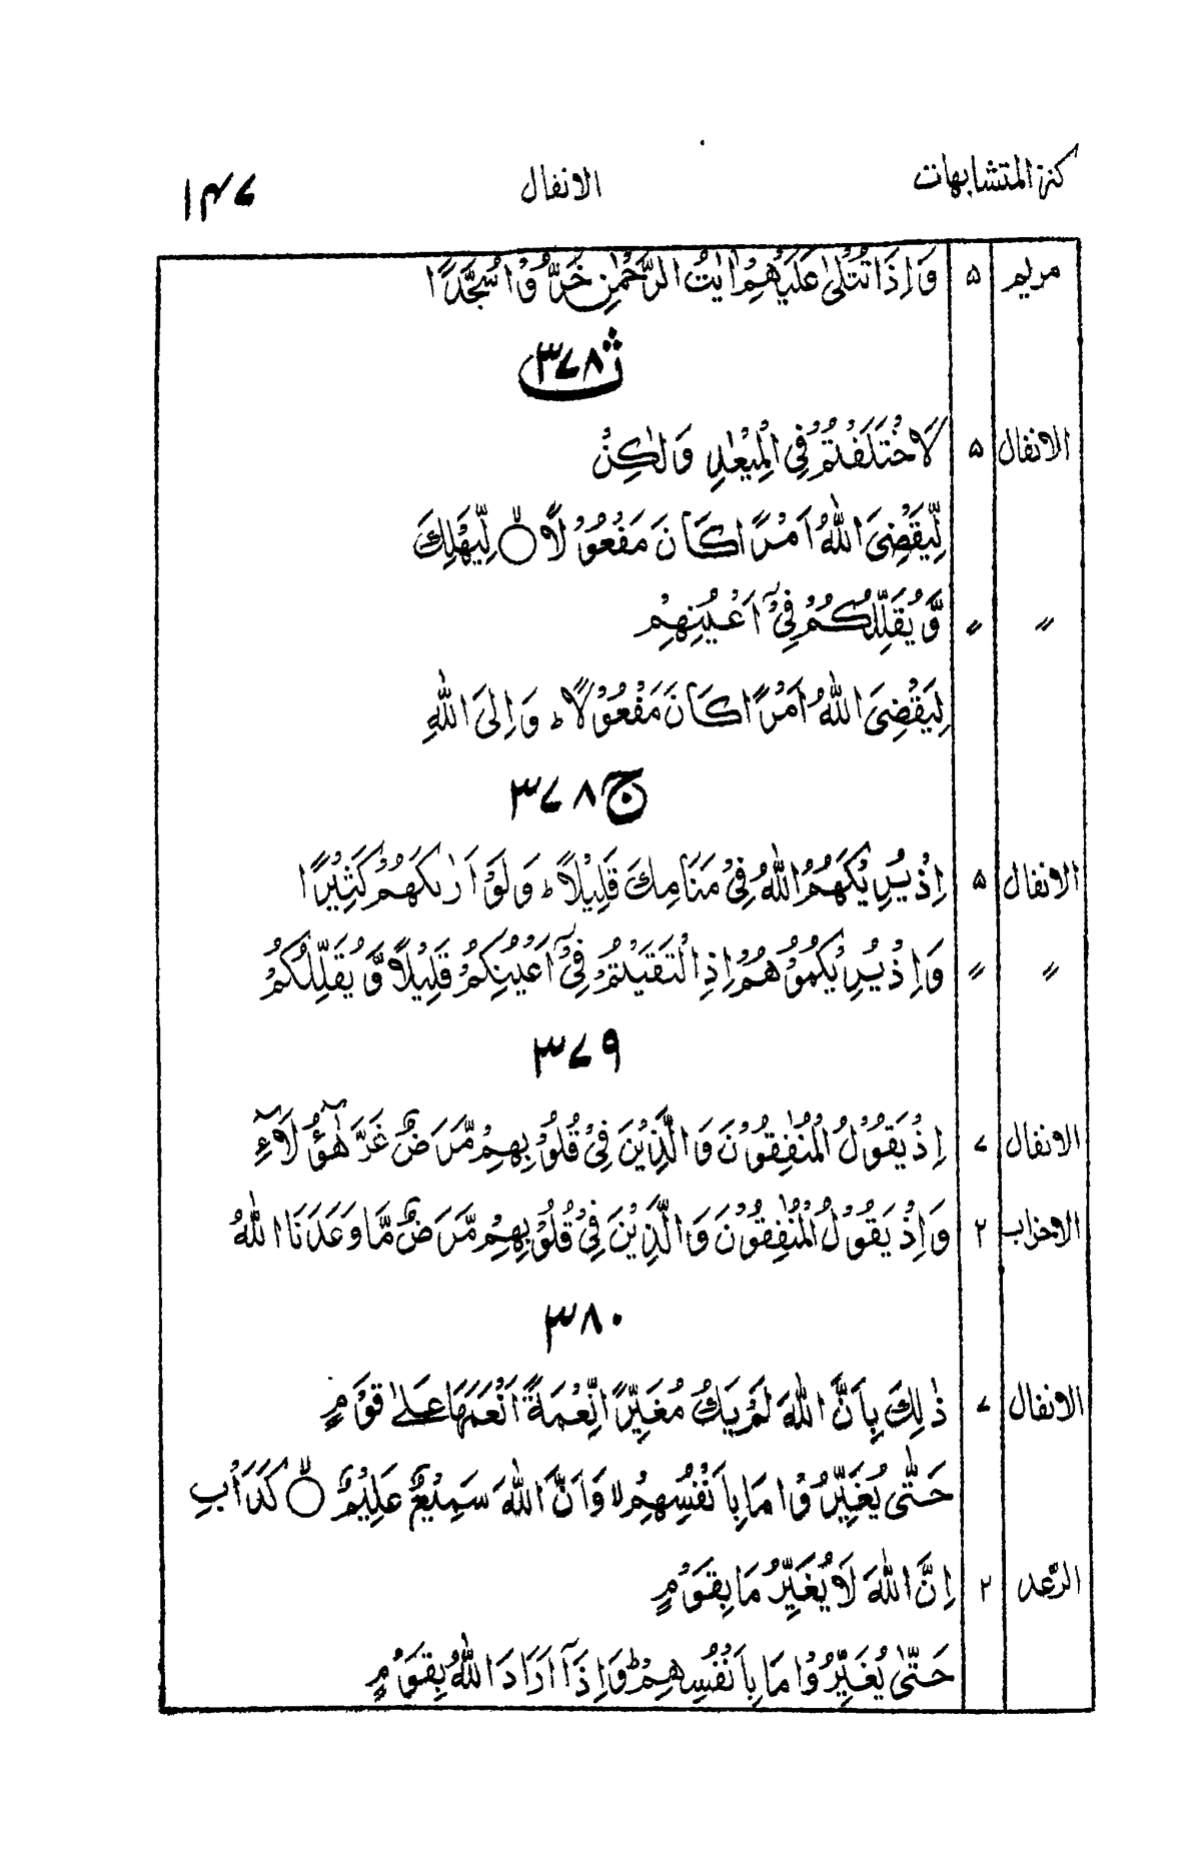 كنز المتشابهات الانفال ١٤٧
مريم ۵ وَاِذَا تُتْلٰى عَلَيْهِمْ اٰيٰتُ الرَّحْمٰنِ خَرُّوْا سُجَّدًا
ث ٣٧٨
الانفال ۵ لَاخْتَلَفْتُمْ فِي الْمِيْعٰدِ وَلٰكِنْ
لِّيَقْضِيَ اللّٰهُ اَمْرًا كَانَ مَفْعُوْلًا ۙ○ لِّيَهْلِكَ
〃 〃 وَّيُقَلِّلُكُمْ فِيْٓ اَعْيُنِهِمْ
لِيَقْضِيَ اللّٰهُ اَمْرًا كَانَ مَفْعُوْلًا ؕ وَاِلَى اللّٰهِ
ج ٣٧٨
الانفال ۵ اِذْ يُرِيْكَهُمُ اللّٰهُ فِيْ مَنَامِكَ قَلِيْلًا ؕ وَلَوْ اَرٰىكَهُمْ كَثِيْرًا
〃 〃 وَاِذْ يُرِيْكُمُوْهُمْ اِذِ الْتَقَيْتُمْ فِيْٓ اَعْيُنِكُمْ قَلِيْلًا وَّيُقَلِّلُكُمْ
٣٧٩
الانفال ٧ اِذْ يَقُوْلُ الْمُنٰفِقُوْنَ وَالَّذِيْنَ فِيْ قُلُوْبِهِمْ مَّرَضٌ غَرَّ هٰٓؤُلَآءِ
الاحزاب ٢ وَاِذْ يَقُوْلُ الْمُنٰفِقُوْنَ وَالَّذِيْنَ فِيْ قُلُوْبِهِمْ مَّرَضٌ مَّا وَعَدَنَا اللّٰهُ
٣٨٠
الانفال ٧ ذٰلِكَ بِاَنَّ اللّٰهَ لَمْ يَكُ مُغَيِّرًا نِّعْمَةً اَنْعَمَهَا عَلٰى قَوْمٍ
حَتّٰى يُغَيِّرُوْا مَا بِاَنْفُسِهِمْ ۙ وَاَنَّ اللّٰهَ سَمِيْعٌ عَلِيْمٌ ۙ○ كَدَاْبِ
الرّعد ٢ اِنَّ اللّٰهَ لَا يُغَيِّرُ مَا بِقَوْمٍ
حَتّٰى يُغَيِّرُوْا مَا بِاَنْفُسِهِمْ ؕ وَاِذَآ اَرَادَ اللّٰهُ بِقَوْمٍ